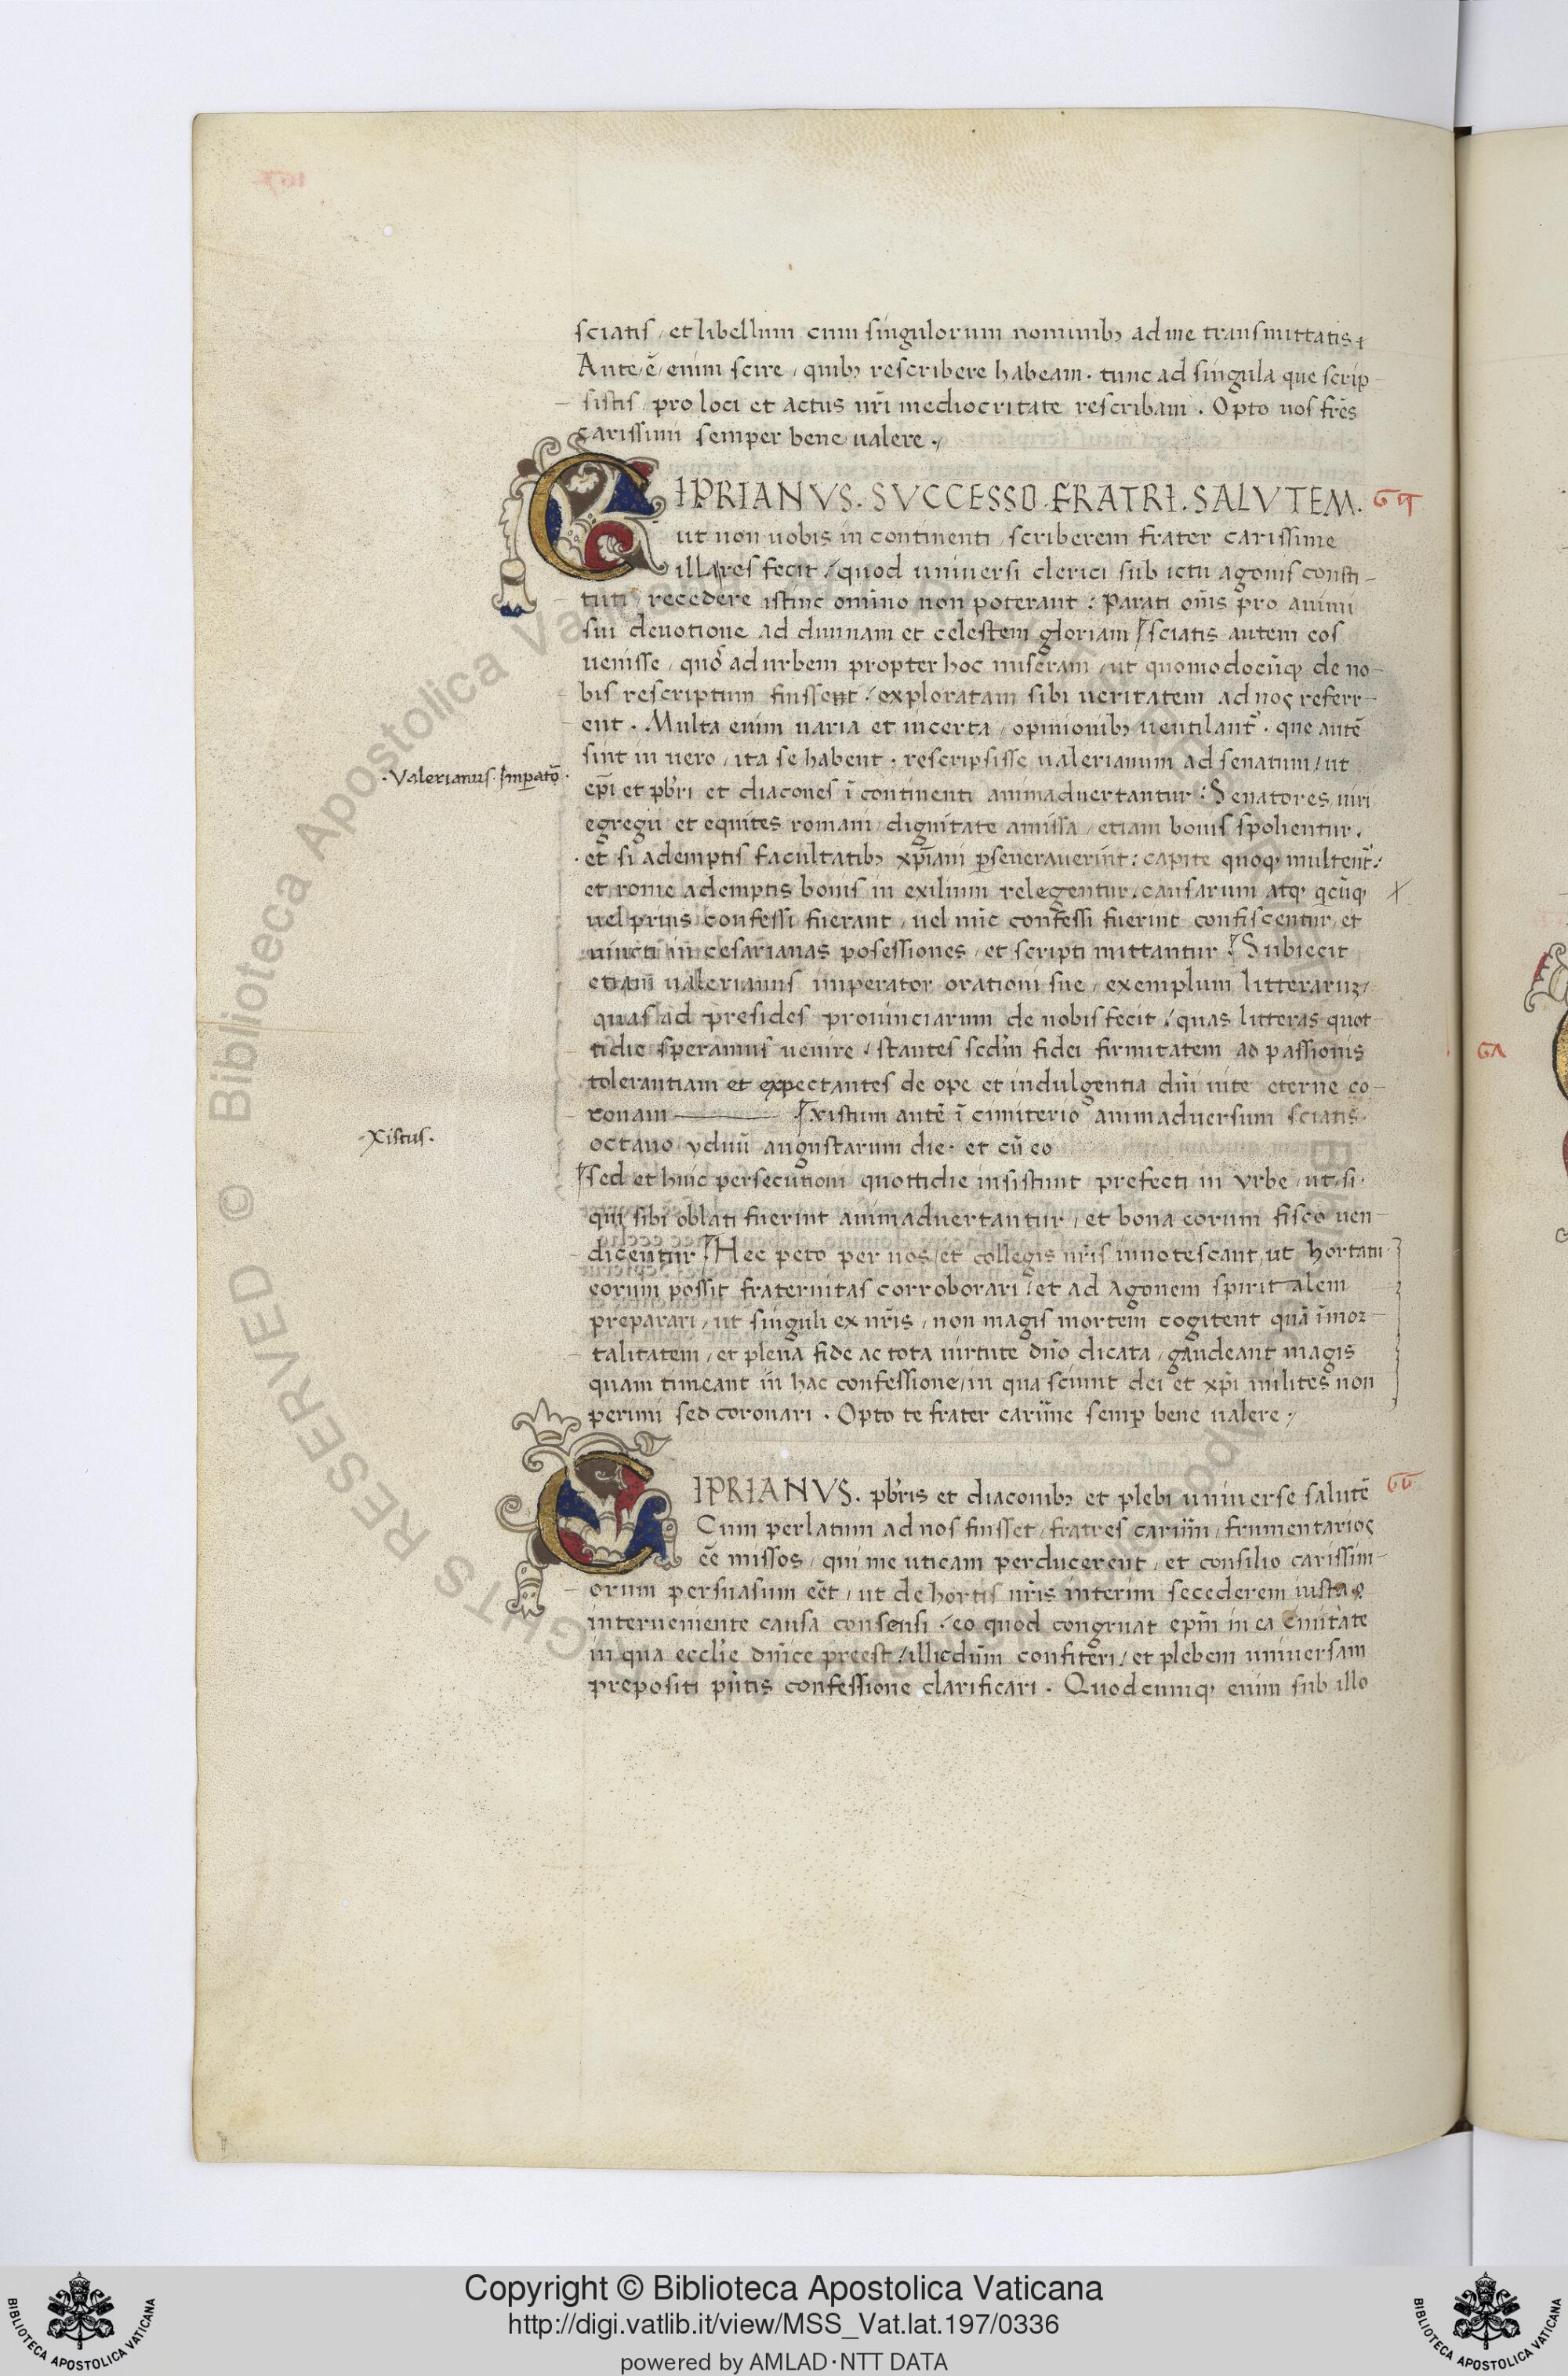 sciatis, et libellum cum singulorum nominibꝫ ad me transmittatis.
Ante, ē, enim scire, quibꝫ rescribere habeam. tunc ad singula que scrip-
sistis, pro loci et actus nr̄i mediocritate rescribam. Opto uos fr̄es
carissimi semper bene ualere.
CIPRIANVS. SVCCESSO. FRATRI. SALVTEM.
ut non uobis in continenti, scriberem frater carissime
illa res fecit, quod uniuersi clerici sub ictu agonis consti-
tuti, recedere istinc omīno non poterant: Parati om̄s pro animi
sui deuotione ad diuinam et celestem gloriam sciatis autem eos
uenisse, quos ad urbem propter hoc miseram, ut quomodocūqꝫ de no-
bis rescriptum fuissent, exploratam sibi ueritatem ad nos referr-
ent. Multa enim uaria et incerta, opinionibꝫ uentilant᷑. que autē
sint in uero, ita se habent. rescripsisse ualerianum ad senatum, ut
.Valerianus. Imperatō.
ep̄i et pb̄ri et diacones ī continenti animaduertantur: Senatores, uiri
egregii et equites romani, dignitate amissa, etiam bonis spolientur.
et si ademptis facultatibꝫ xp̄iani ꝑseuerauerint: capite quoqꝫ multent᷑.
et rome ademptis bonis in exilium relegentur. causarum atqꝫ qcūqꝫ
uel prius confessi fuerant, uel nūc confessi fuerint confiscentur, et
uincti in cesarianas posessiones, et scripti mittantur. Subiecit
etiam ualerianus imperator orationi sue, exemplum litterarūꝫ
quas ad presides prouinciarum de nobis fecit, quas litteras quot-
tidie speramus uenire, stantes sedm̄ fidei firmitatem ad passionis
tolerantiam et expectantes de ope et indulgentia dn̄i uite eterne co-
ronam xistum autē ī cimiterio animaduersum sciatis
-Xistus.
octauo yduū augustarum die. et cū eo
sed et huic persecutioni quottidie insistunt prefecti in vrbe, ut, si.
qui sibi oblati fuerint animaduertantur, et bona eorum fisco uen-
dicentur Hec peto per uos, et collegis nr̄is innotescant, ut hortatu
eorum possit fraternitas corroborari, et ad agonem spiritalem
preparari, ut singuli ex nr̄is, non magis mortem cogitent quā īmor-
talitatem, et plena fide ac tota uirtute dn̄o dicata, gaudeant magis
quam timeant in hac confessione, in qua sciunt dei et xp̄i milites non
perimi sed coronari. Opto te frater carim̄e semꝑ bene ualere,
CIPRIANVS. pb̄ris et diaconibꝫ et plebi uniuerse salutē
Cum perlatum ad nos fuisset, fratres carim̄i, frumentarios
eē missos, qui me uticam perducerent, et consilio carissim-
orum persuasum eēt, ut de hortis nr̄is interim secederem iusta
interueniente causa consensi, eo quod congruat epm̄ in ea ciuitate
in qua eccl̄ie dn̄ice preest, illic dūm confiteri, et plebem uniuersam
prepositi pn̄tis confessione clarificari. Quodcumqꝫ enim sub illo
Copyright © Biblioteca Apostolica Vaticana
http://digi.vatlib.it/view/MSS_Vat.lat.197/0336
powered by AMLAD·NTT DATA
BIBLIOTECA APOSTOLICA VATICANA
BIBLIOTECA APOSTOLICA VATICANA